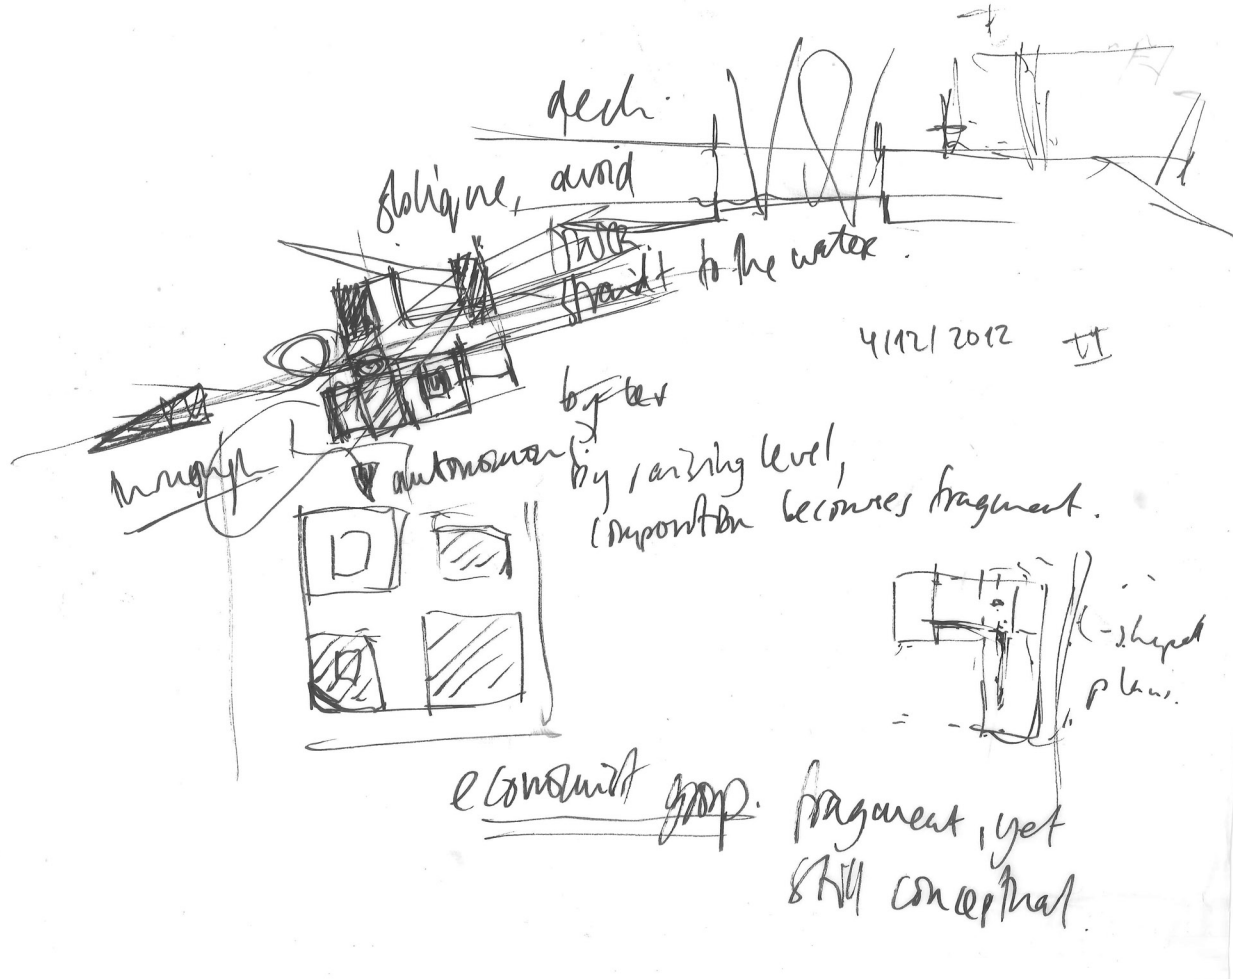 deck.
oblique, avoid
to the water.
4/12/2012
through
autonomous
by raising level,
composition becomes fragment.
L-shaped
plan.
economist group.
fragment, yet
still conceptual.